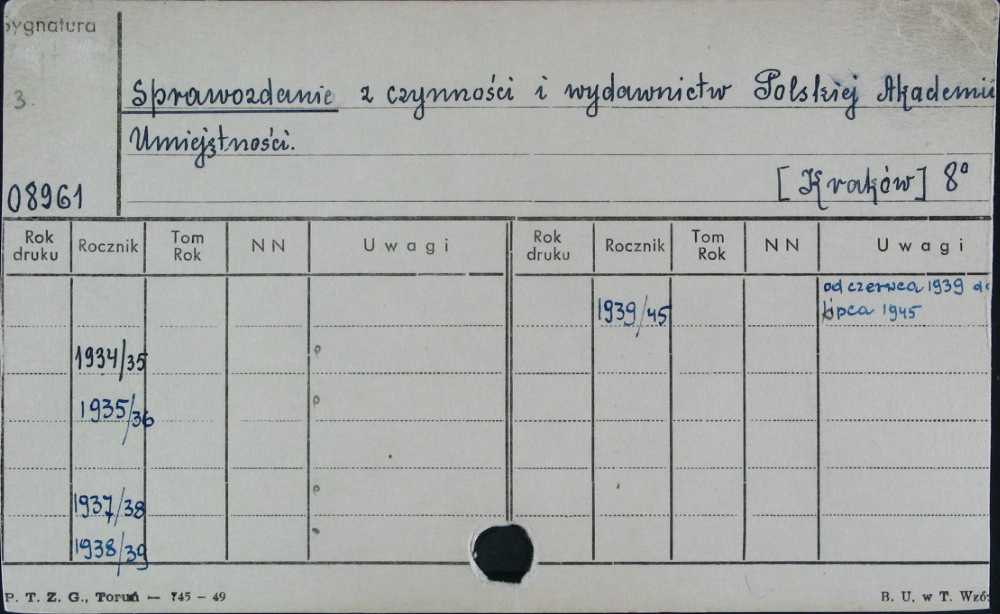 Sygnatura
3.
Sprawozdanie z czynności i wydawnictw Polskiej Akademii
Umiejętności.
[Kraków] 8°
08961
Rok druku Rocznik Tom Rok NN Uwagi Rok druku Rocznik Tom Rok NN Uwagi
1939/45 od czerwca 1939 do
lipca 1945
1934/35
1935/36
1937/38
1938/39
P. T. Z. G., Toruń — 745 – 49 B. U. w T. Wzó